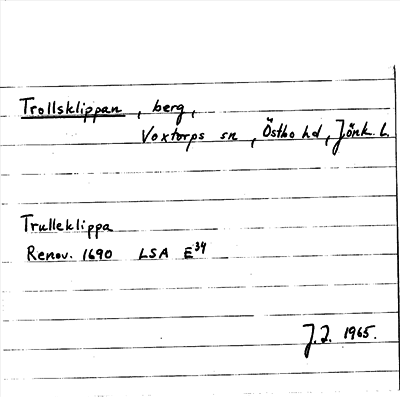 Trollsklippan, berg,
Voxtorps sn, Östbo hd, Jönk. L.
Trulleklippa
Renov. 1690 LSA E34
J.I. 1965.